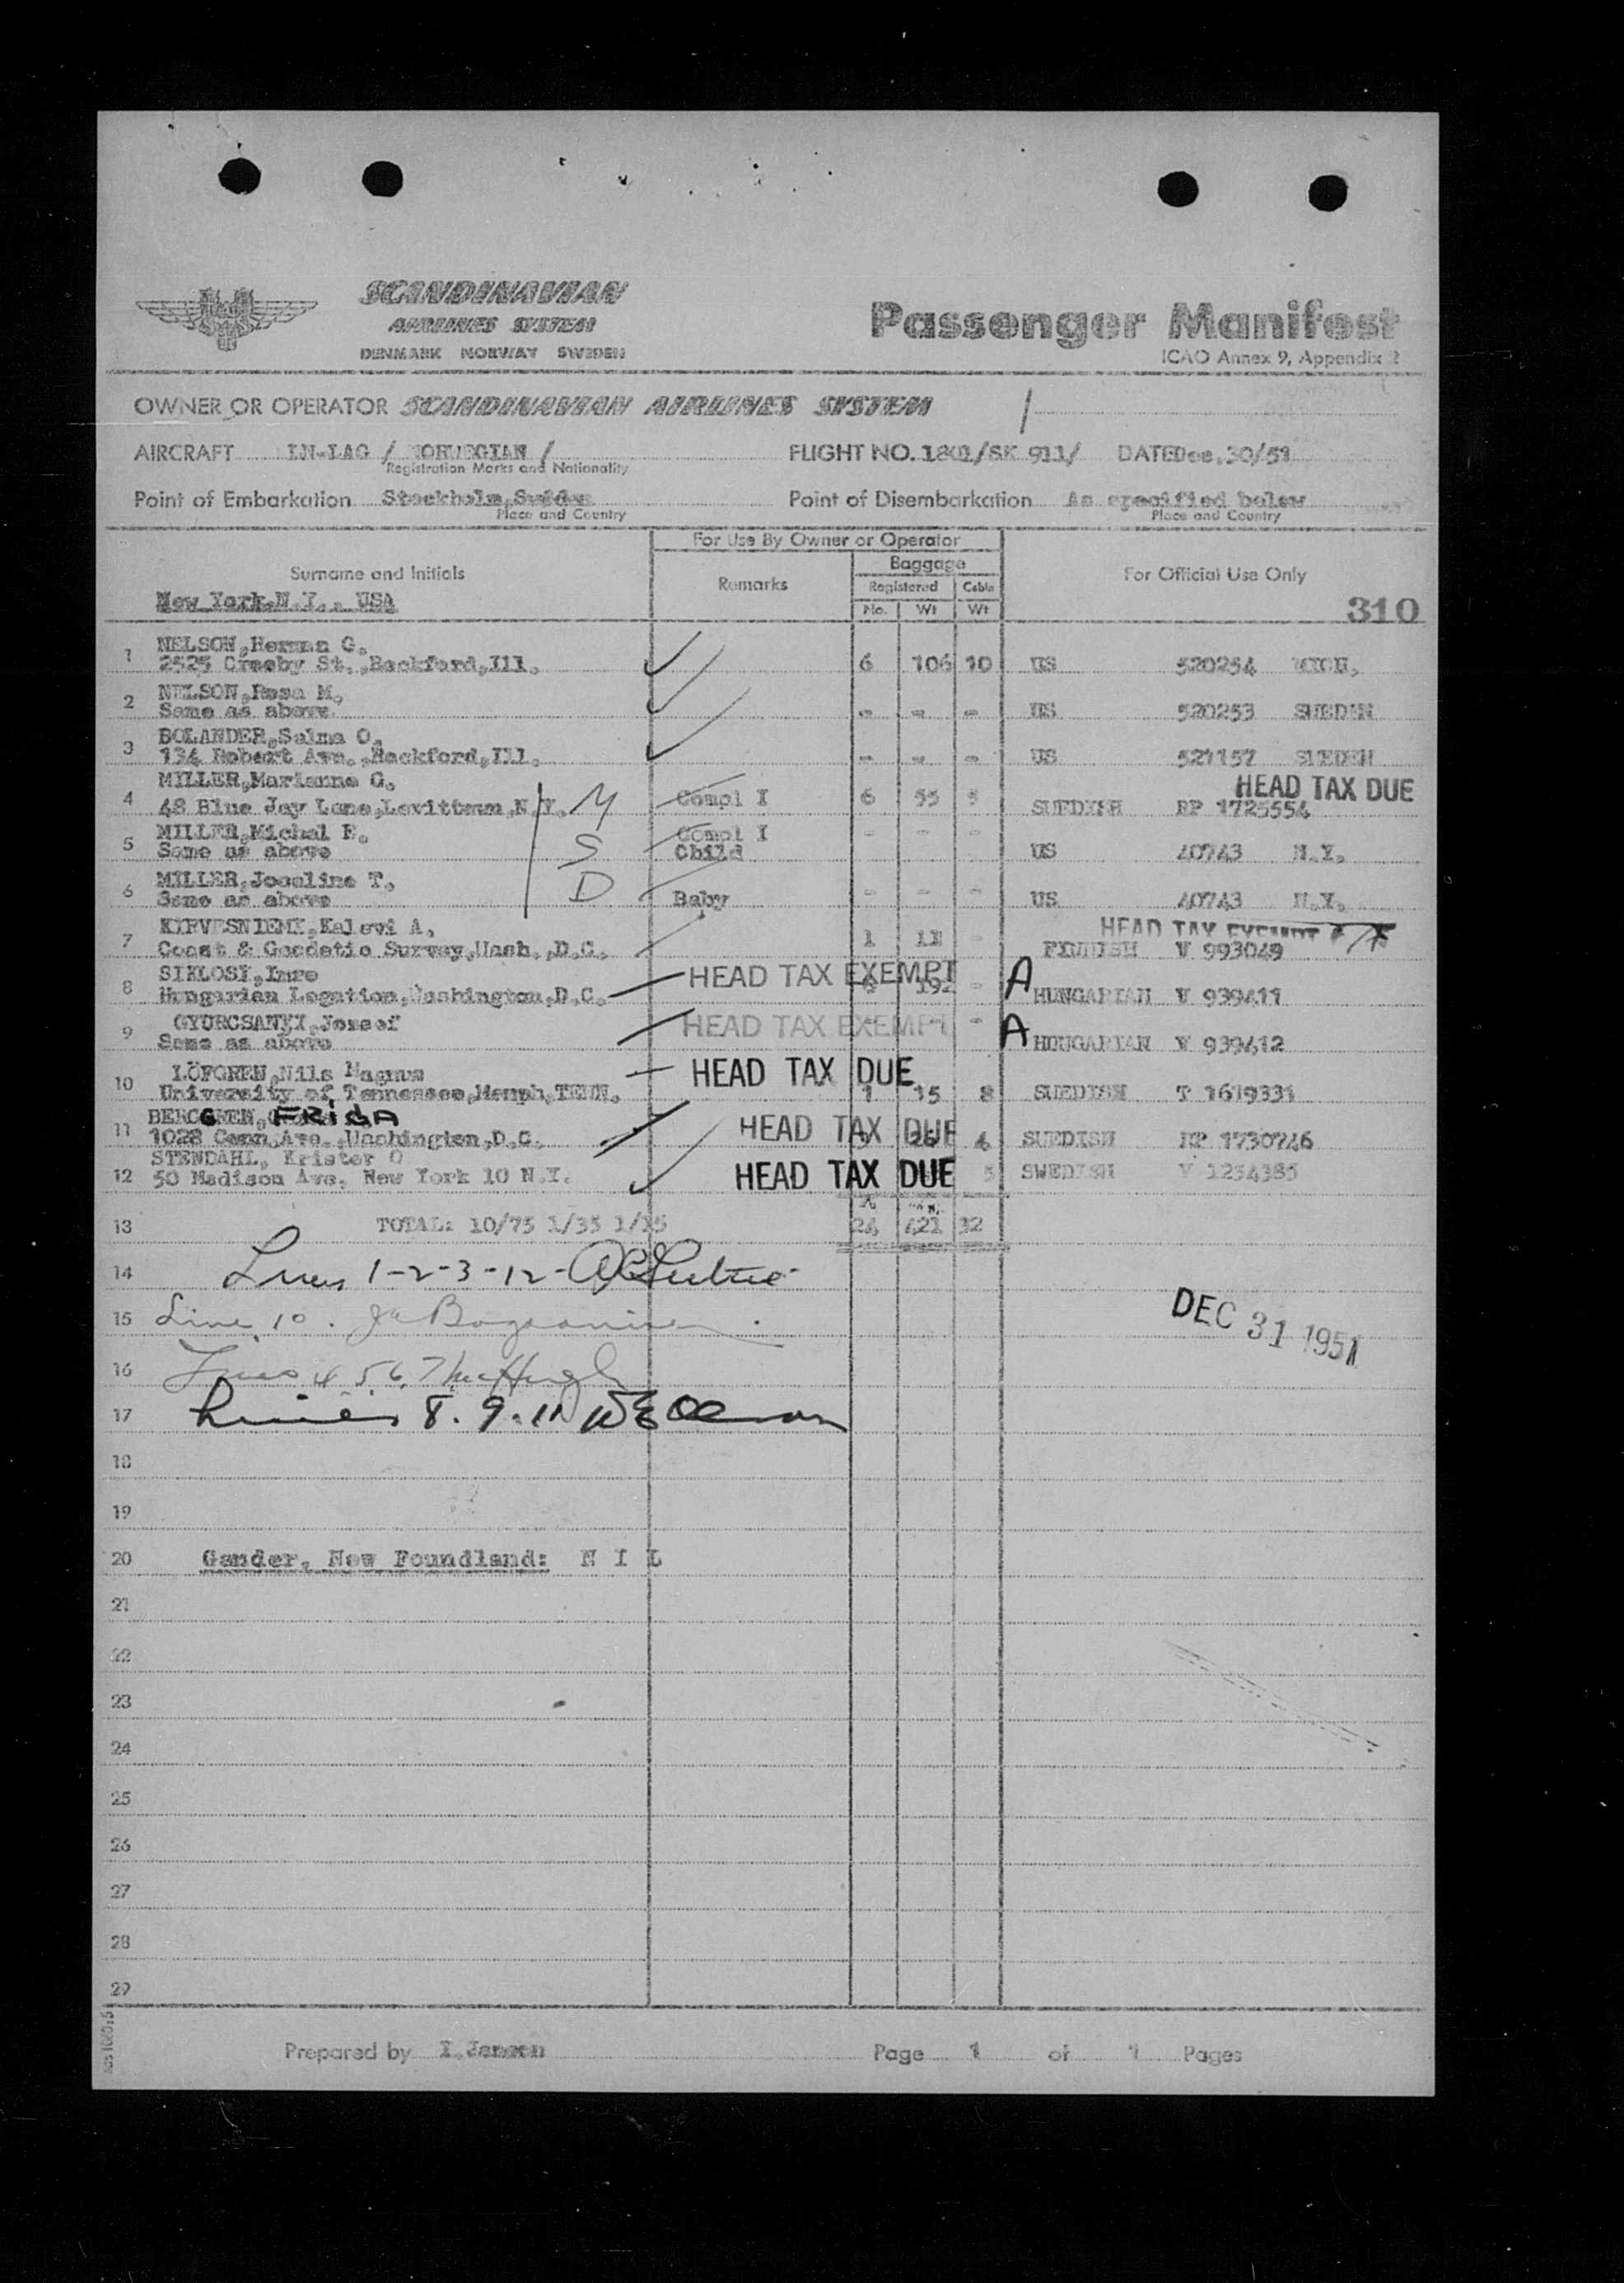 SCANDINAVIAN
AIRLINES SYSTEM
DENMARK NORWAY SWEDEN
Passenger Manifest
ICAO Annex 9, Appendix 2
OWNER OR OPERATOR SCANDINAVIAN AIRLINES SYSTEM
AIRCRAFT LN-LAG / NORWEGIAN / FLIGHT NO. 1801/SK 911/ DATE Dec.30/51
Registration Marks and Nationality
Point of Embarkation Stockholm,Sweden Point of Disembarkation As specified below
Place and Country Place and Country
For Use By Owner or Operator
Surname and Initials Remarks Baggage For Official Use Only
Registered Cabin
No. Wt Wt
New York,N.Y., USA 310
1 NELSON,Herman G.
2525 St.,Rockford,Ill. 6 106 10 US 520254 MICH.
2 NELSON,Rosa M.
Same as above. - - - US 520253 SWEDEN
3 BOLANDER,Selma O.
134 Robert Ave.,Rockford,Ill. - - - US 521157 SWEDEN
4 MILLER,Marianne G. HEAD TAX DUE
48 Blue Jay Lane,Levittown,N.Y. M Compl I 6 55 5 SWEDISH RP 1725554
5 MILLER,Michal E. Compl I
Same as above S Child - - - US 40743 N.Y.
6 MILLER,Joceline T.
Same as above D Baby - - - US 40743 N.Y.
7 KIRVESNIEMI,Kalevi A. HEAD TAX EXEMPT
Coast & Geodetic Survey,Wash.,D.C. 1 11 - FINNISH V 993049
8 SIKLOSI,Imre HEAD TAX EXEMPT A
Hungarian Legation,Washington,D.C. 192 - HUNGARIAN V 939411
9 GYURCSANYI,Jozsef HEAD TAX EXEMPT - - A
Same as above HOUGARIAN V 939412
10 LÖFGREN,Nils Magnus HEAD TAX DUE
University of Tennessee,Memph,TENN. 1 15 8 SWEDISH T 1619331
11 BERGGREN, FRIDA HEAD TAX DUE
1028 Conn.Ave.,Washington,D.C. 4 SWEDISH RP 1730746
12 STENDAHL, Krister O
50 Madison Ave, New York 10 N.Y. HEAD TAX DUE 5 SWEDISH V 1254385
13 TOTAL: 10/75 1/35 1/15 24 421 32
14 Lines 1-2-3-12-
15 Line 10.
DEC 31 1951
16 Lines 4 5 6 7 McHugh
17 Lines 8. 9. 11
18
19
20 Gander, New Foundland: N I L
21
22
23
24
25
26
27
28
29
Prepared by I.Jensen Page 1 of 1 Pages